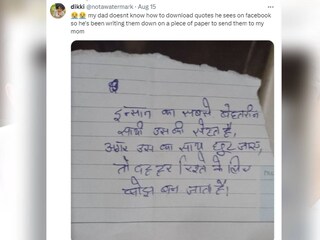 dikki @notawatermark · Aug 15
😢😢 my dad doesnt know how to download quotes he sees on facebook
so he's been writing them down on a piece of paper to send them to my
mom
इन्सान का सबसे बेहतरीन
साथी उस की सेहत है,
अगर उस का साथ छुट जाए,
तो वह हर रिश्ते के लिए
बोझ बन जाता है।